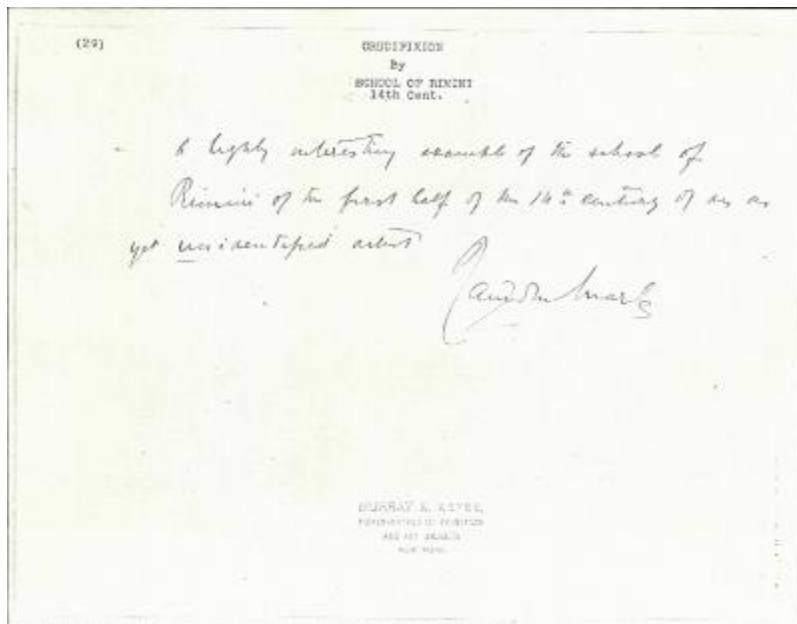 (29)
CRUCIFIXION
By
SCHOOL OF RIMINI
14th Cent.
A highly interesting example of the school of
Rimini of the first half of the 14th century of an as
yet unidentified artist
MURRAY K. KEYES,
PHOTOGRAPHER OF PAINTINGS
AND ART OBJECTS
NEW YORK